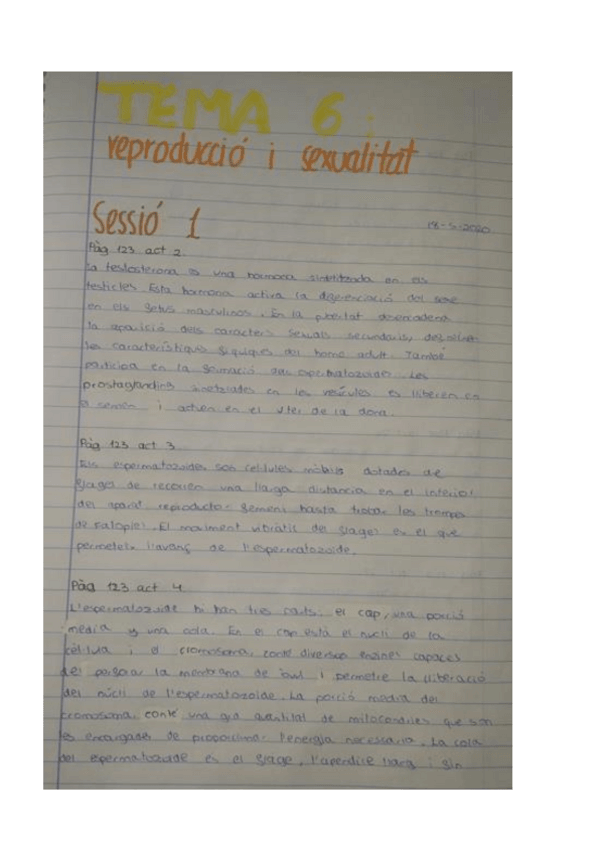 TEMA 6:
reproducció i sexualitat
Sessió 1
18-5-2020
Pàg 123 act 2
La testosterona es una hormona sintitzada en els
testicles. Esta hormona activa la diferenciació del sexe
en els fetus masculinos. En la pubertat desencadena
la aparició dels caracters sexuals secundaris,
les caracteristiques fisiques del home adult. També
participa en la formació dels espermatozoides. Les
prostaglandins en les vesícules es lliberen en
el semen i actuen en el uter de la dona.
Pàg 123 act 3
Els espermatozoides son cel·lules mòbils dotades de
flages de recorren una llarga distancia en el interior
del aparat reproductor femení hasta trobar les trompes
de falopio. El moviment vibratil del flagel es el que
permeteix l'avanç de l'espermatozoide.
Pàg 123 act 4
L'espermatozoide hi han tres parts: el cap, una porció
media y una coa. En el cap està el nucli de la
cèl·lula i el cromosoma, conté diversos enzims capaces
del perforar la membrana de l'ovul i permetre la lliberació
del nucli de l'espermatozoide. La porció media del
cromosoma, conté una gra quantitat de mitocondries que son
les encargades de proporcionar l'energia necessaria. La coa
del espermatozoide es el flage, l'apendice llarg i fin